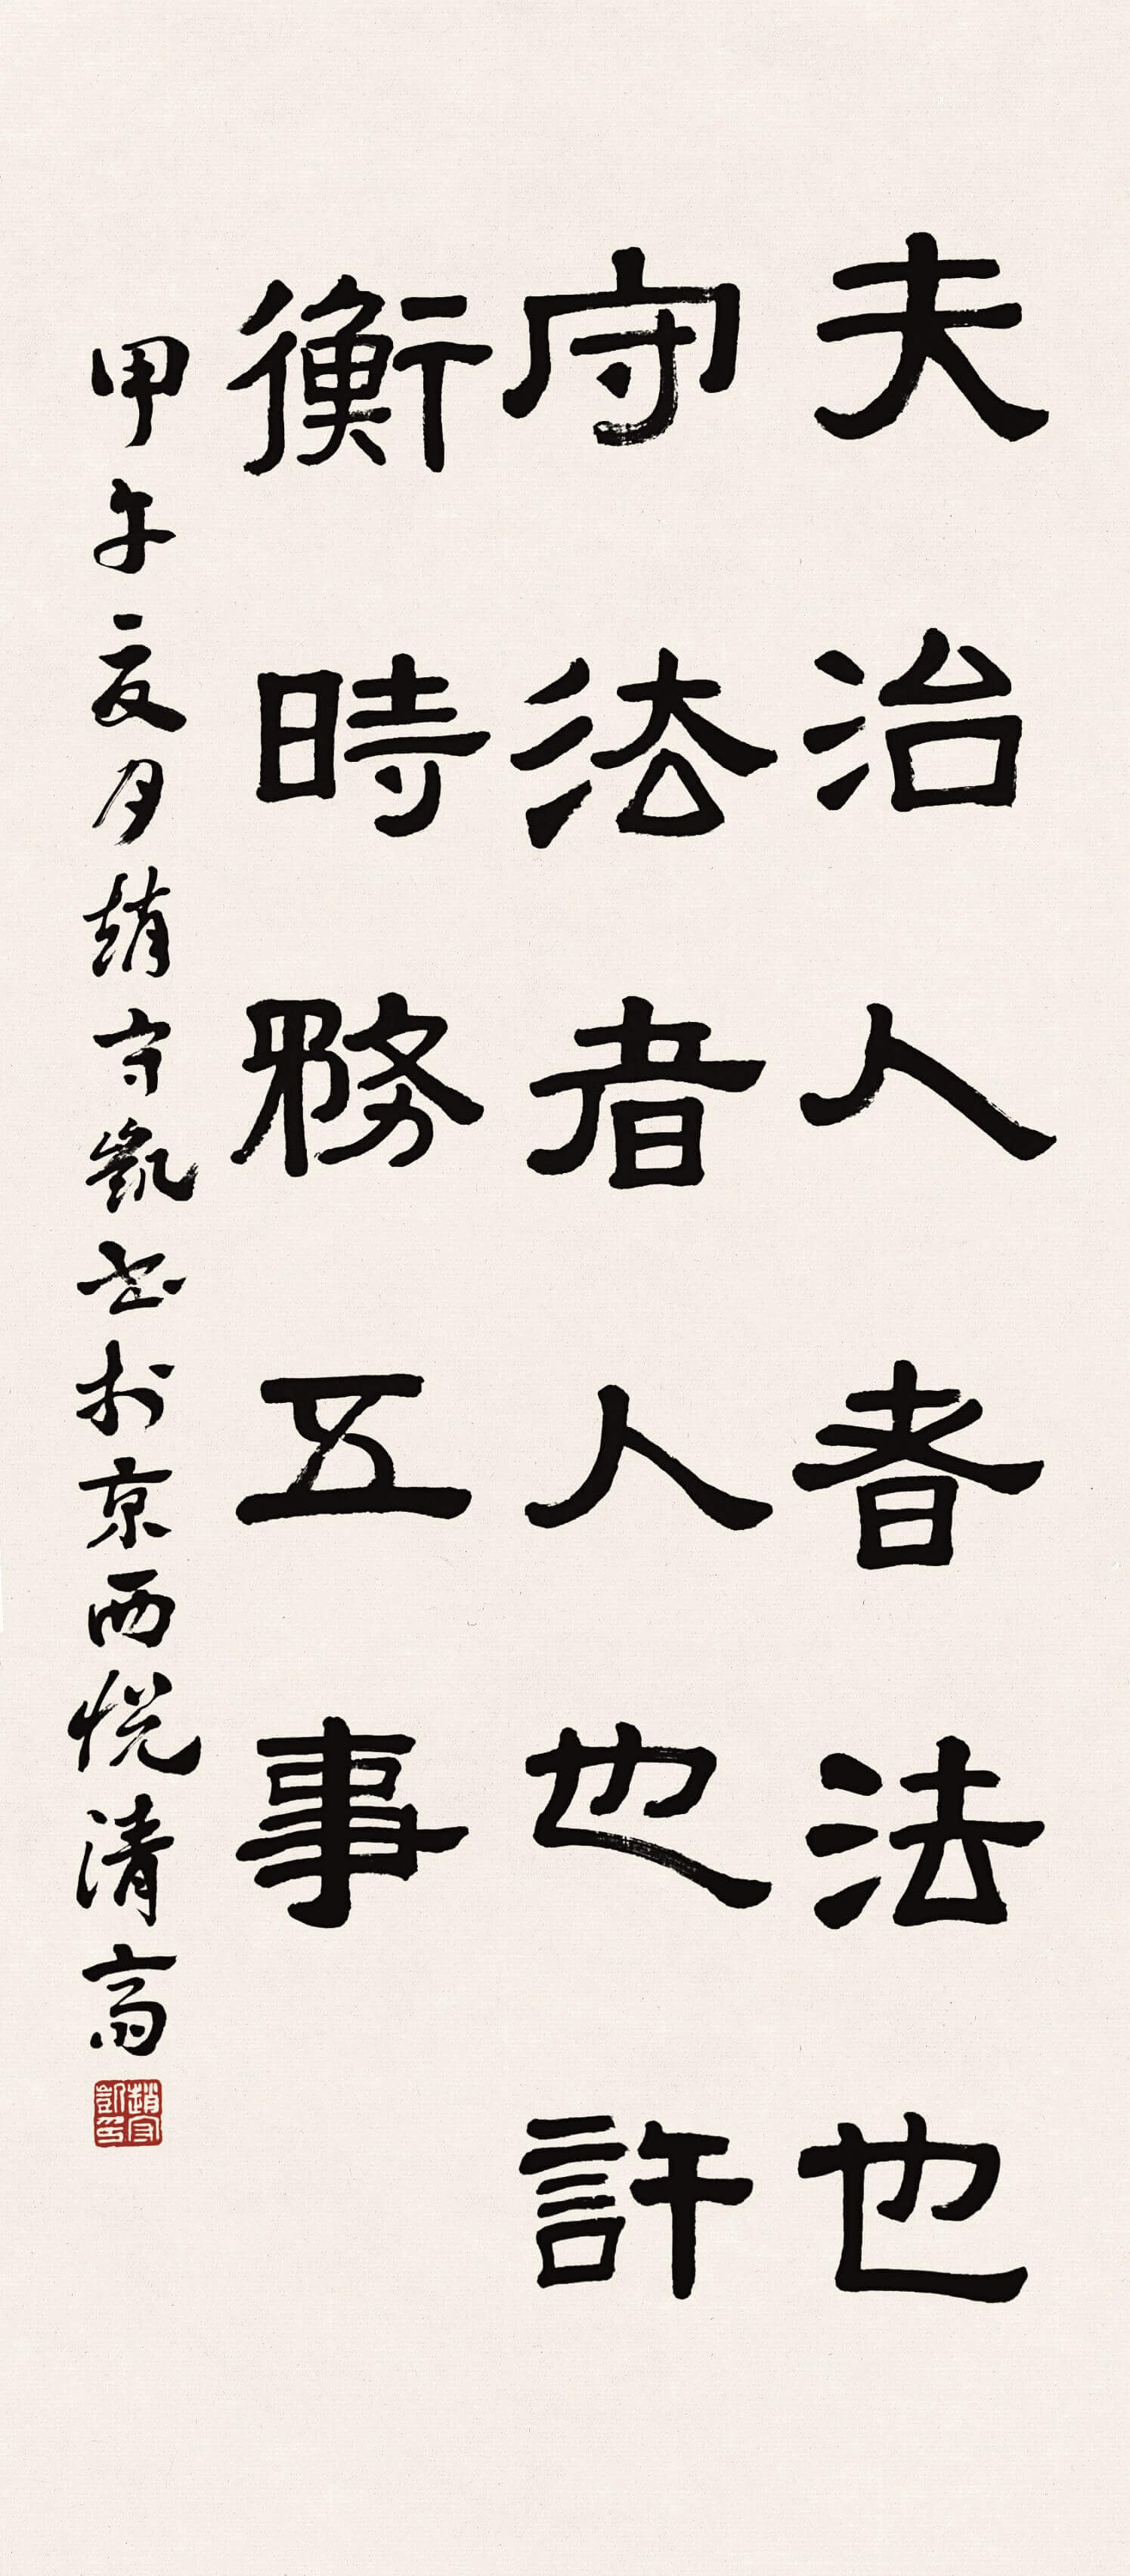 夫治人者法也
守法者人也許
衡時務五事
甲午夏月趙守凱書於京西悦清齋
趙守凱印